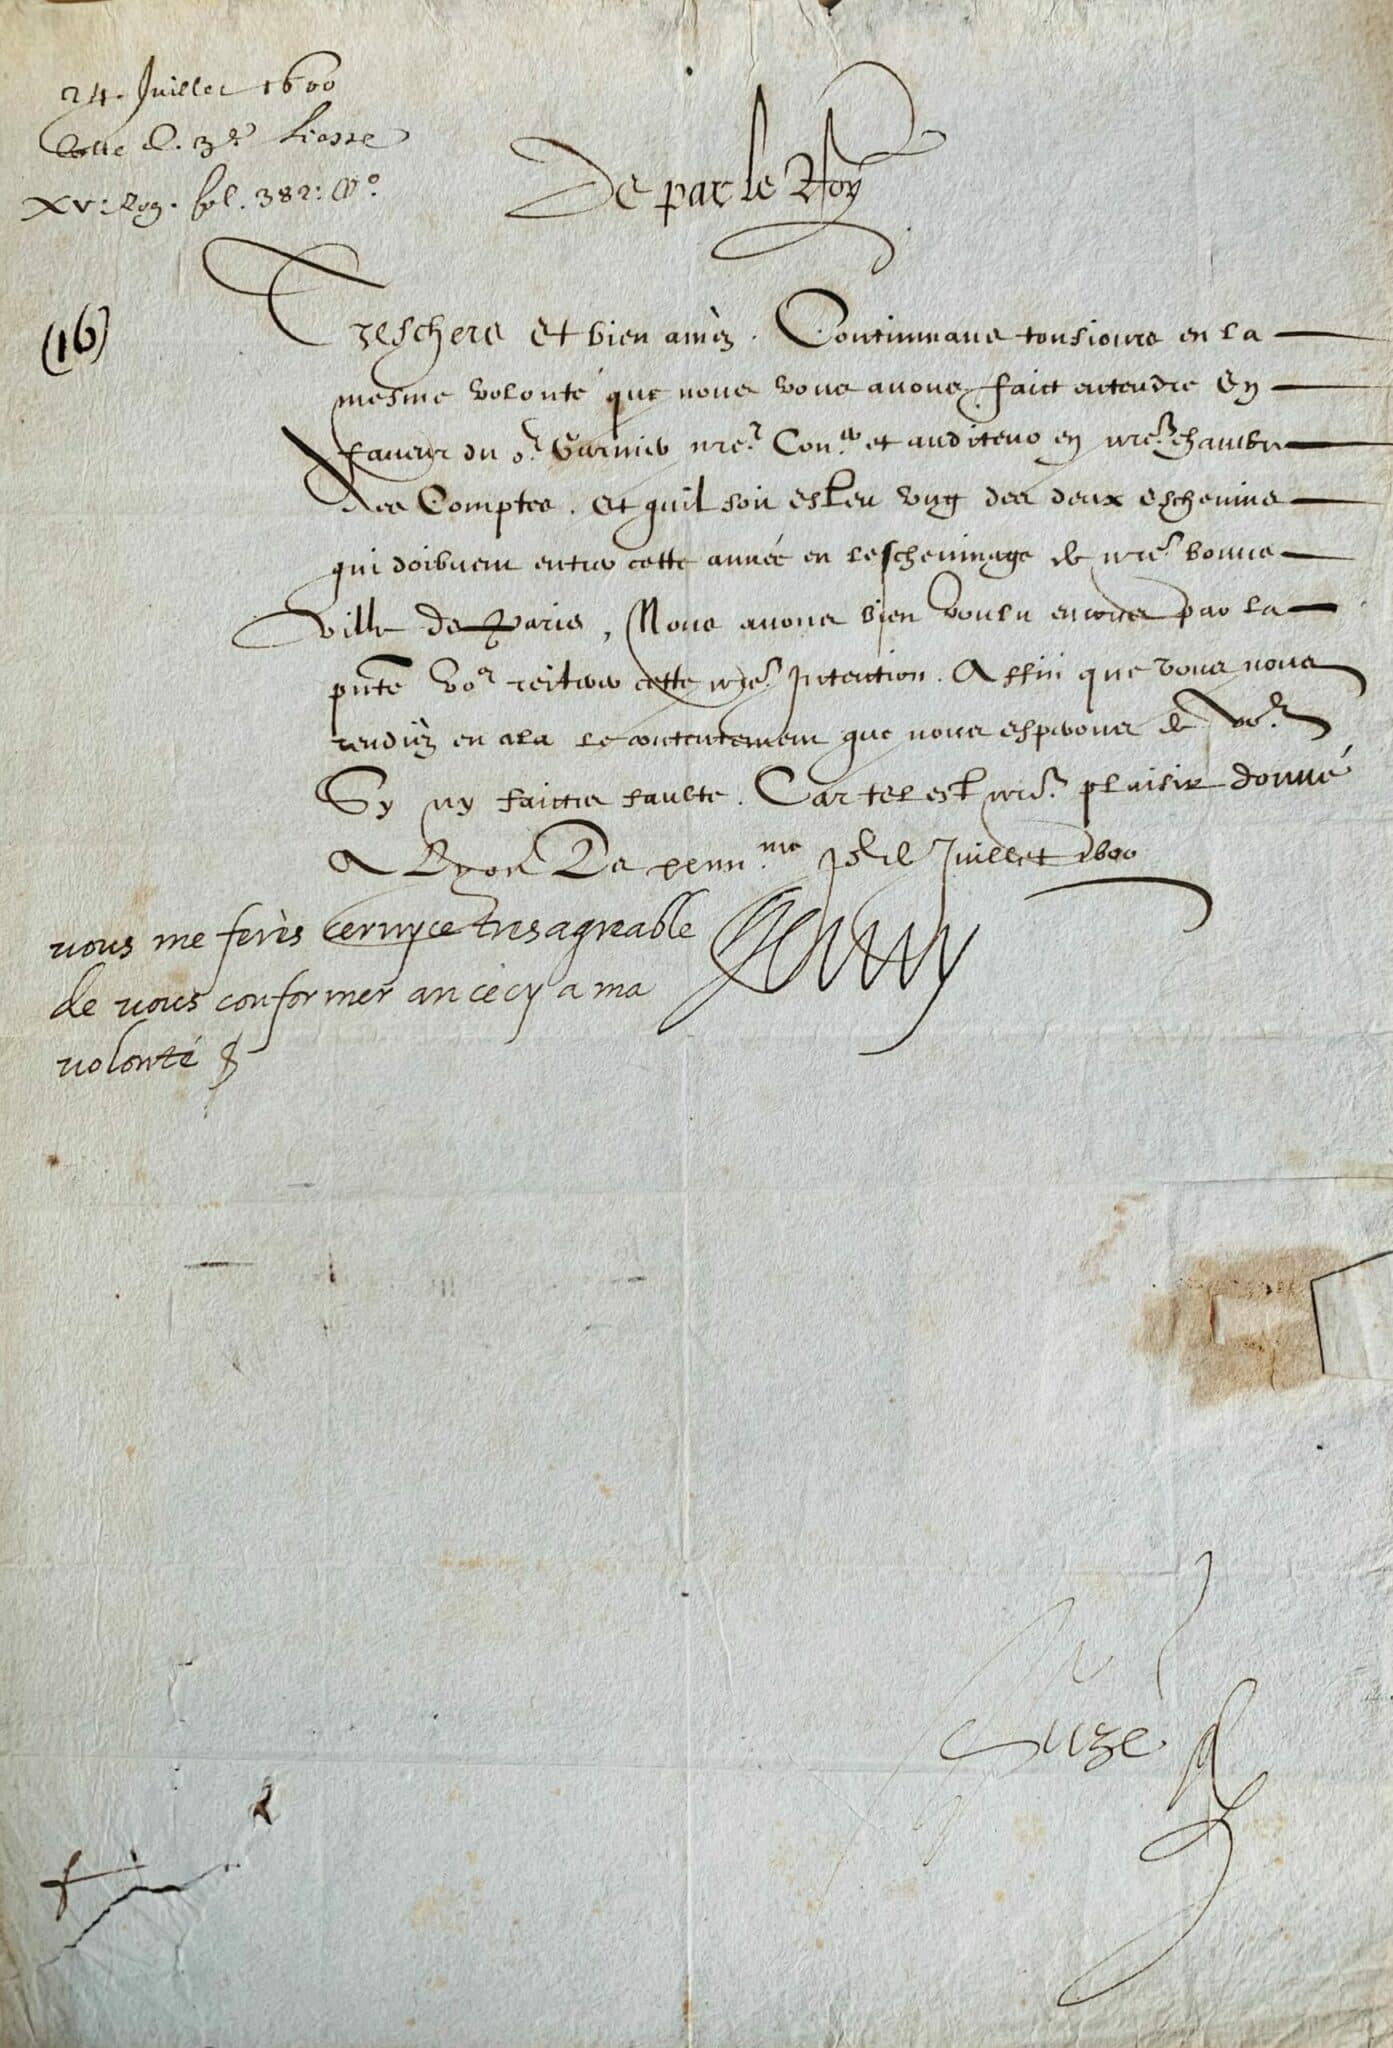 24. Juillet 1600
Cotte d. 3e Liasse
XVe Reg. fol. 382: Vo
De par le Roy
(16)
Treschers et bien amèz. Continuans tousiours en la
mesme volonté que nous vous auons faict entendre En
faueur du sr Garnier nre Coner et auditeur en nre chambre
des Comptes. Et quil soit esleu vng des deux escheuins
qui doibuent entrer cette année en lescheuinage de nre bonne
ville de Paris, Nous auons bien voulu encores par la
pnte vor reiterer cette nre Intention. Affin que vous nous
rendiéz en cela le contentement que nous esperons de vor
Sy ny faictes faulte. Car tel est nre plaisir donné
A Lyon Le Jor de Juillet 1600
vous me ferès cervyce tresagreable Henry
de vous conformer an cecy a ma
volonté
Ruzé